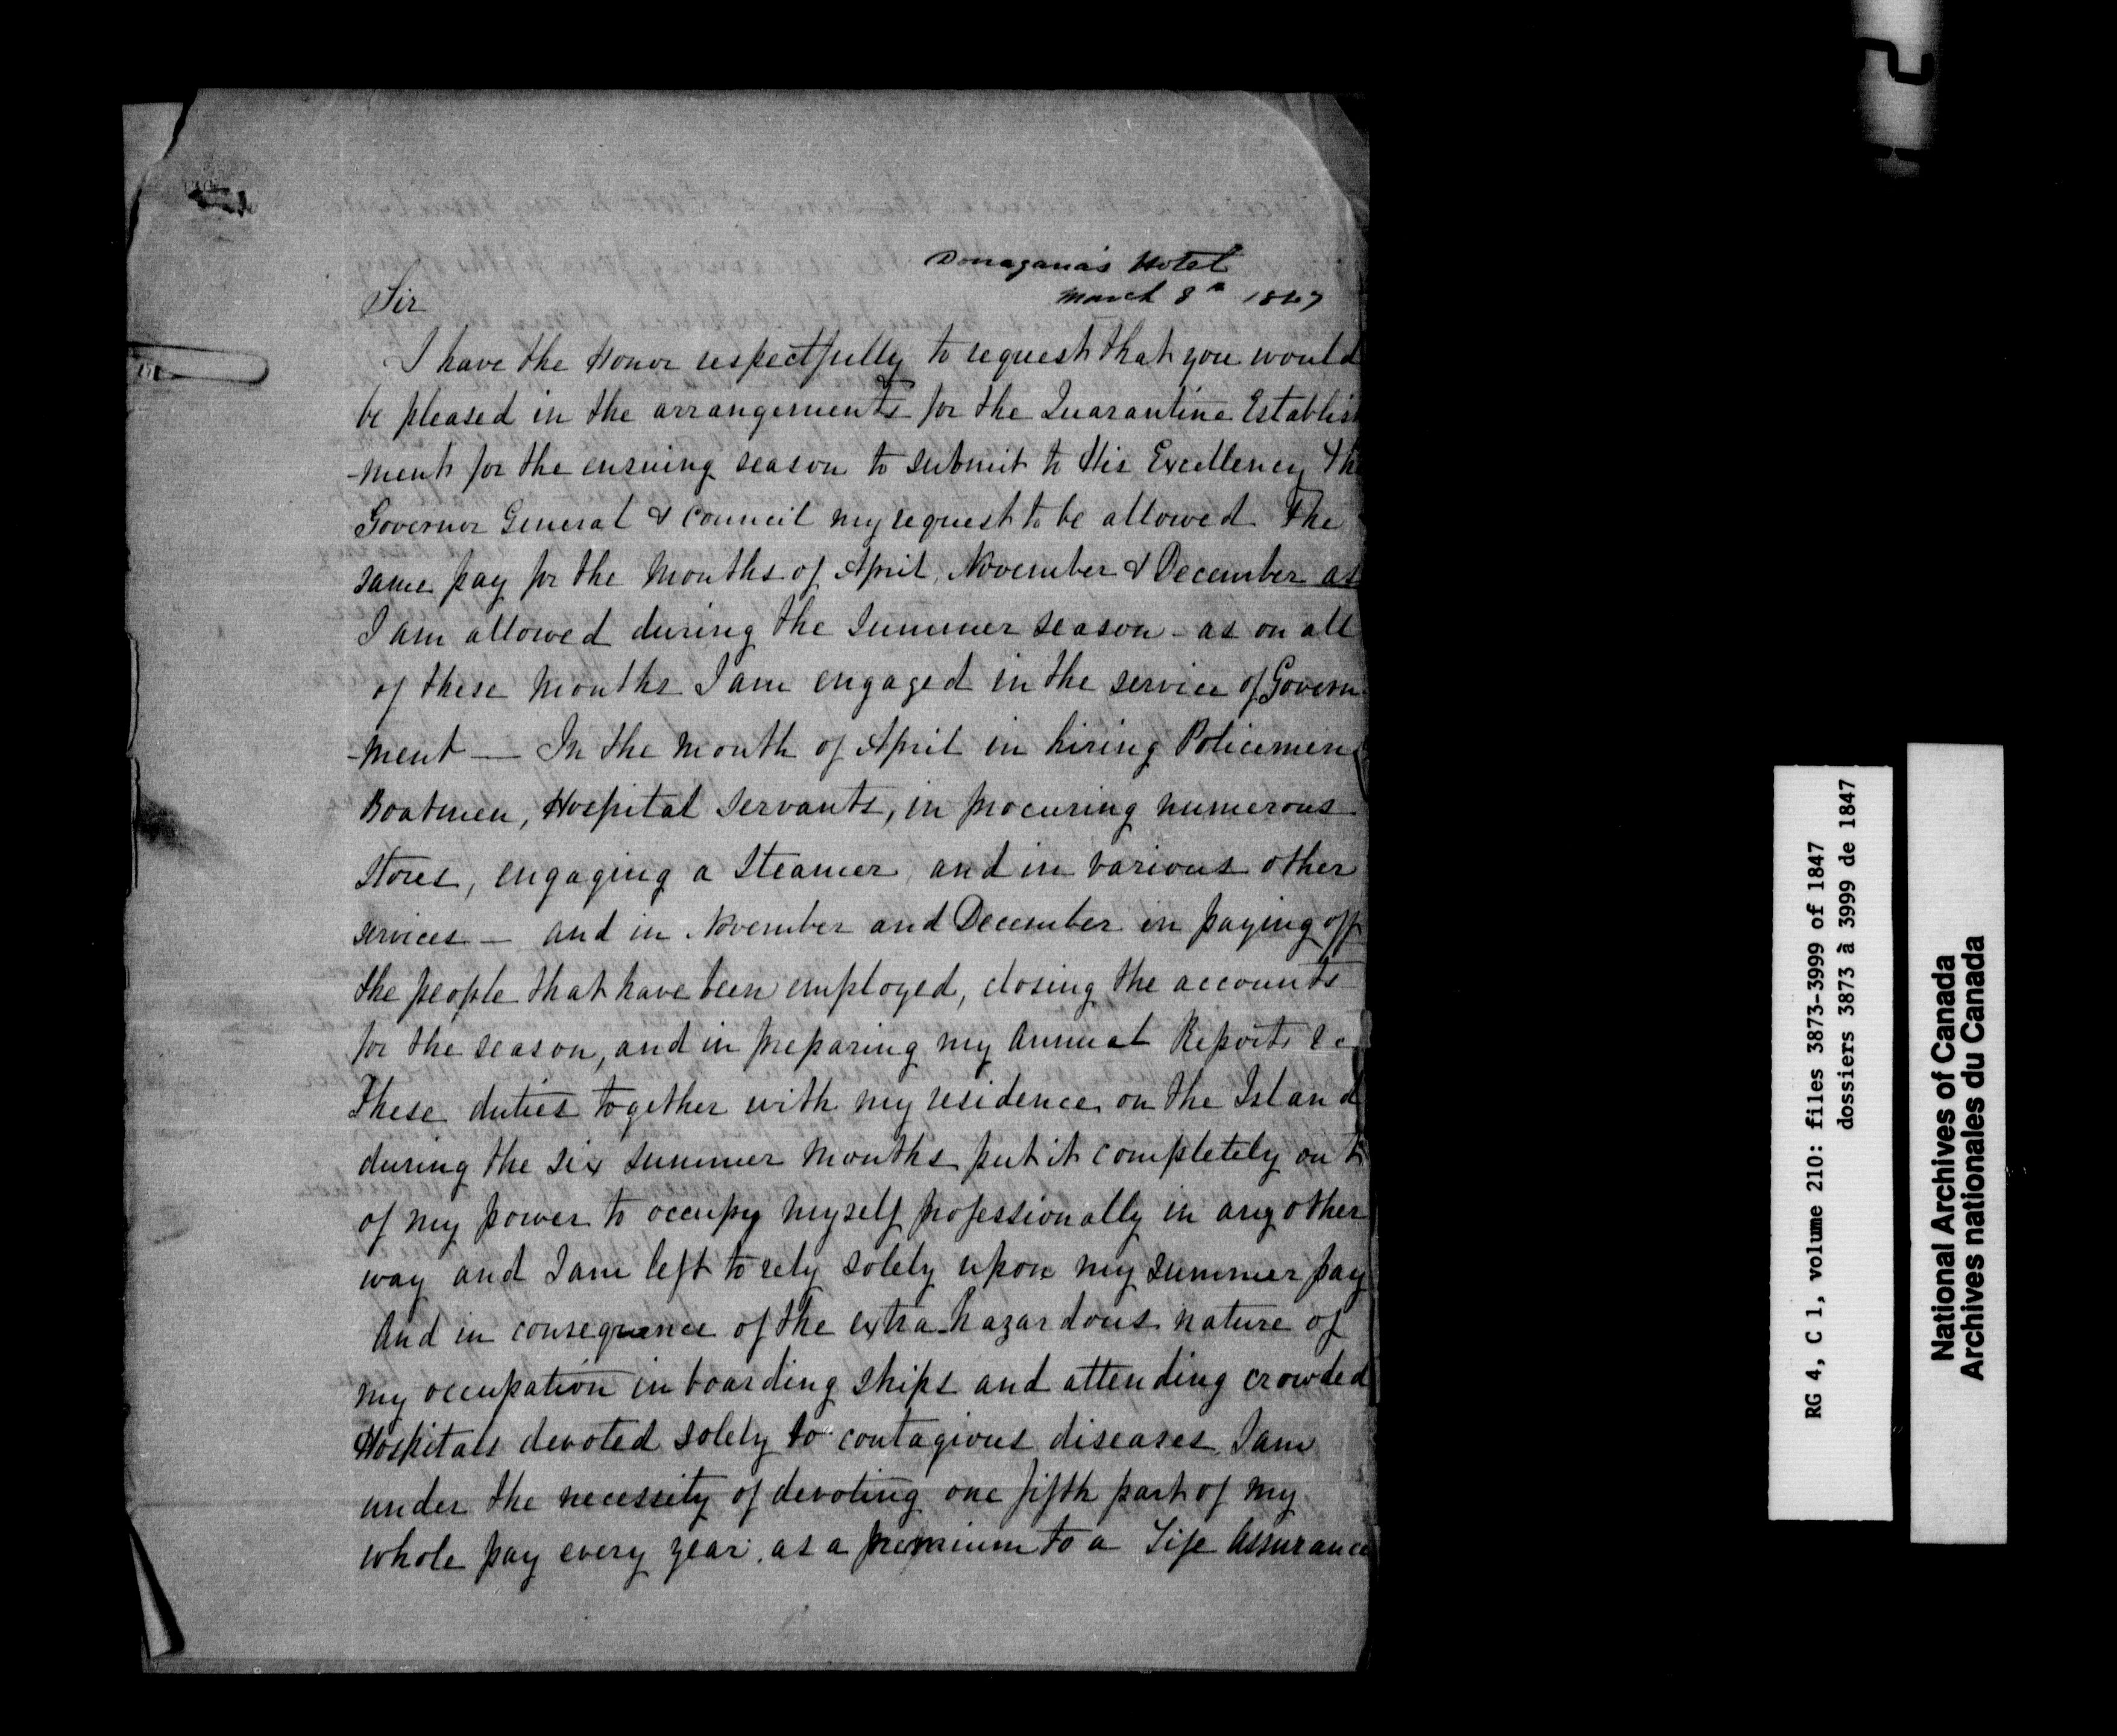 Donagana's Hotel
March 8th 1847
Sir
I have the Honor respectfully to request that you would
be pleased in the arrangements for the Quarantine Establish
-ment for the ensuing season to submit to His Excellency The
Governor General & Council my request to be allowed The
same pay for the Months of April, November & December as
I am allowed during the Summer season - as on all
of these Months I am engaged in the service of Govern-
-ment — In the Month of April in hiring Policemen
Boatmen, Hospital Servants, in procuring numerous
Stores, engaging a Steamer, and in various other
services — and in November and December in paying off
the people that have been employed, closing the accounts
for the season, and in preparing my Annual Reports &c
These duties together with my residence on the Island
during the six summer Months put it completely out
of my power to occupy myself professionally in any other
way and I am left to rely solely upon my summer pay
And in consequence of the extra hazardous nature of
my occupation in boarding ships and attending crowded
Hospitals devoted solely to contagious diseases I am
under the necessity of devoting one fifth part of my
whole pay every year, as a premium to a Life Assurance
RG 4, C 1, volume 210: files 3873-3999 of 1847
dossiers 3873 à 3999 de 1847
National Archives of Canada
Archives nationales du Canada